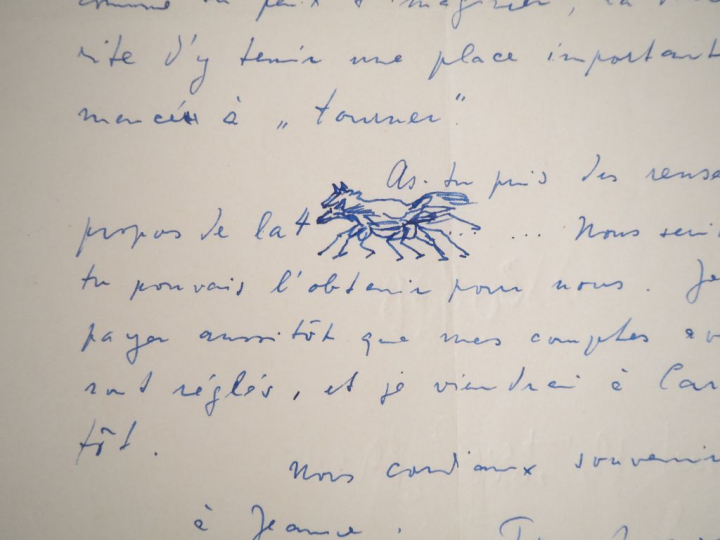 comme tu peux l'imaginer, la
rite d'y tenir une place important
mencés à „tourner".
As-tu pris des rense
propos de la 4 ... ... Nous seri
tu pouvais l'obtenir pour nous. Je
payer aussitôt que mes comptes av
ront réglés, et je viendrai à Car
tôt.
Nous cordiaux souvenir
à Jeanne.